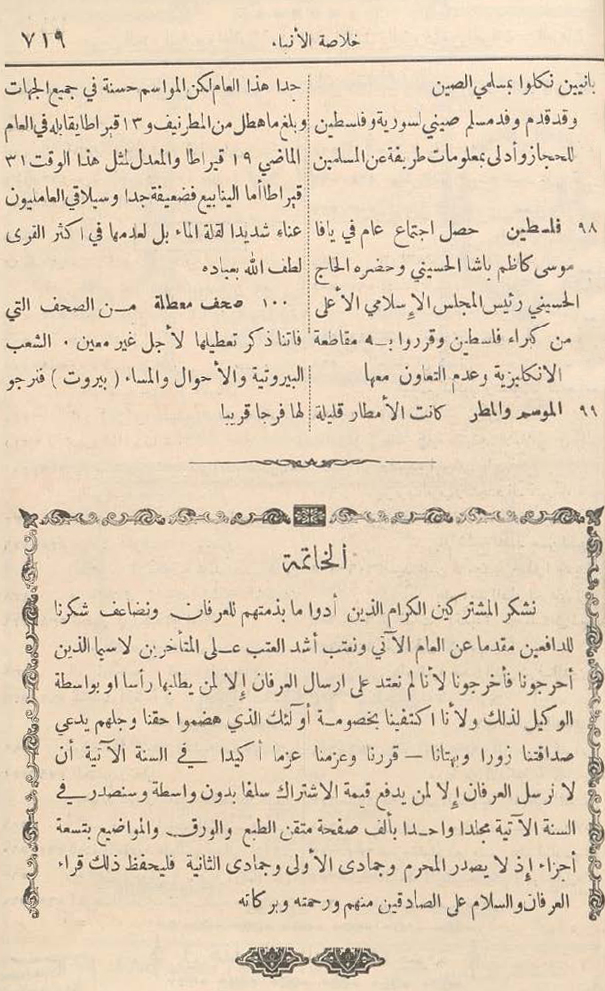 خلاصة الأنباء
٧١٩
بانيين نكلوا بمسلمي الصين
وقد قدم وفد مسلم صيني لسورية وفلسطين
للحجاز وأدلى بمعلومات طريفة عن المسلمين
٩٨ فلسطين حصل اجتماع عام في يافا
موسى كاظم باشا الحسيني وحضره الحاج
الحسيني رئيس المجلس الإسلامي الأعلى
من كبراء فلسطين وقرروا به مقاطعة
الانكليزية وعدم التعاون معها
٩٩ الموسم والمطر كانت الأمطار قليلة
جدا هذا العام لكن المواسم حسنة في جميع الجهات
وبلغ ما هطل من المطر نيف و١٣ قيراطا يقابله في العام
الماضي ١٩ قيراطا والمعدل لمثل هذا الوقت ٣١
قيراطا أما الينابيع فضعيفة جدا وسيلاقي العامليون
عناء شديدا لقلة الماء بل لعدمها في اكثر القرى
لطف الله بعباده
١٠٠ صحف معطلة من الصحف التي
فاتنا ذكر تعطيلها لأجل غير معين ٠ الشعب
البيروتية والأحوال والمساء (بيروت) فنرجو
لها فرجا قريبا
الخاتمة
نشكر المشتركين الكرام الذين أدوا ما بذمتهم للعرفان ونضاعف شكرنا
للدافعين مقدما عن العام الآتي ونعتب أشد العتب على المتأخرين لاسيما الذين
أحرجونا فأخرجونا لأنا لم نعتد على ارسال العرفان إلا لمن يطلبها رأسا او بواسطة
الوكيل لذلك ولأنا اكتفينا بخصومة أولئك الذي هضموا حقنا وجلهم يدعي
صداقتنا زورا وبهتانا – قررنا وعزمنا عزما أكيدا في السنة الآتية أن
لا نرسل العرفان إلا لمن يدفع قيمة الاشتراك سلفا بدون واسطة وسنصدر في
السنة الآتية مجلدا واحدا بألف صفحة متقن الطبع والورق والمواضيع بتسعة
أجزاء إذ لا يصدر المحرم وجمادى الأولى وجمادى الثانية فليحفظ ذلك قراء
العرفان والسلام على الصادقين منهم ورحمته وبركاته